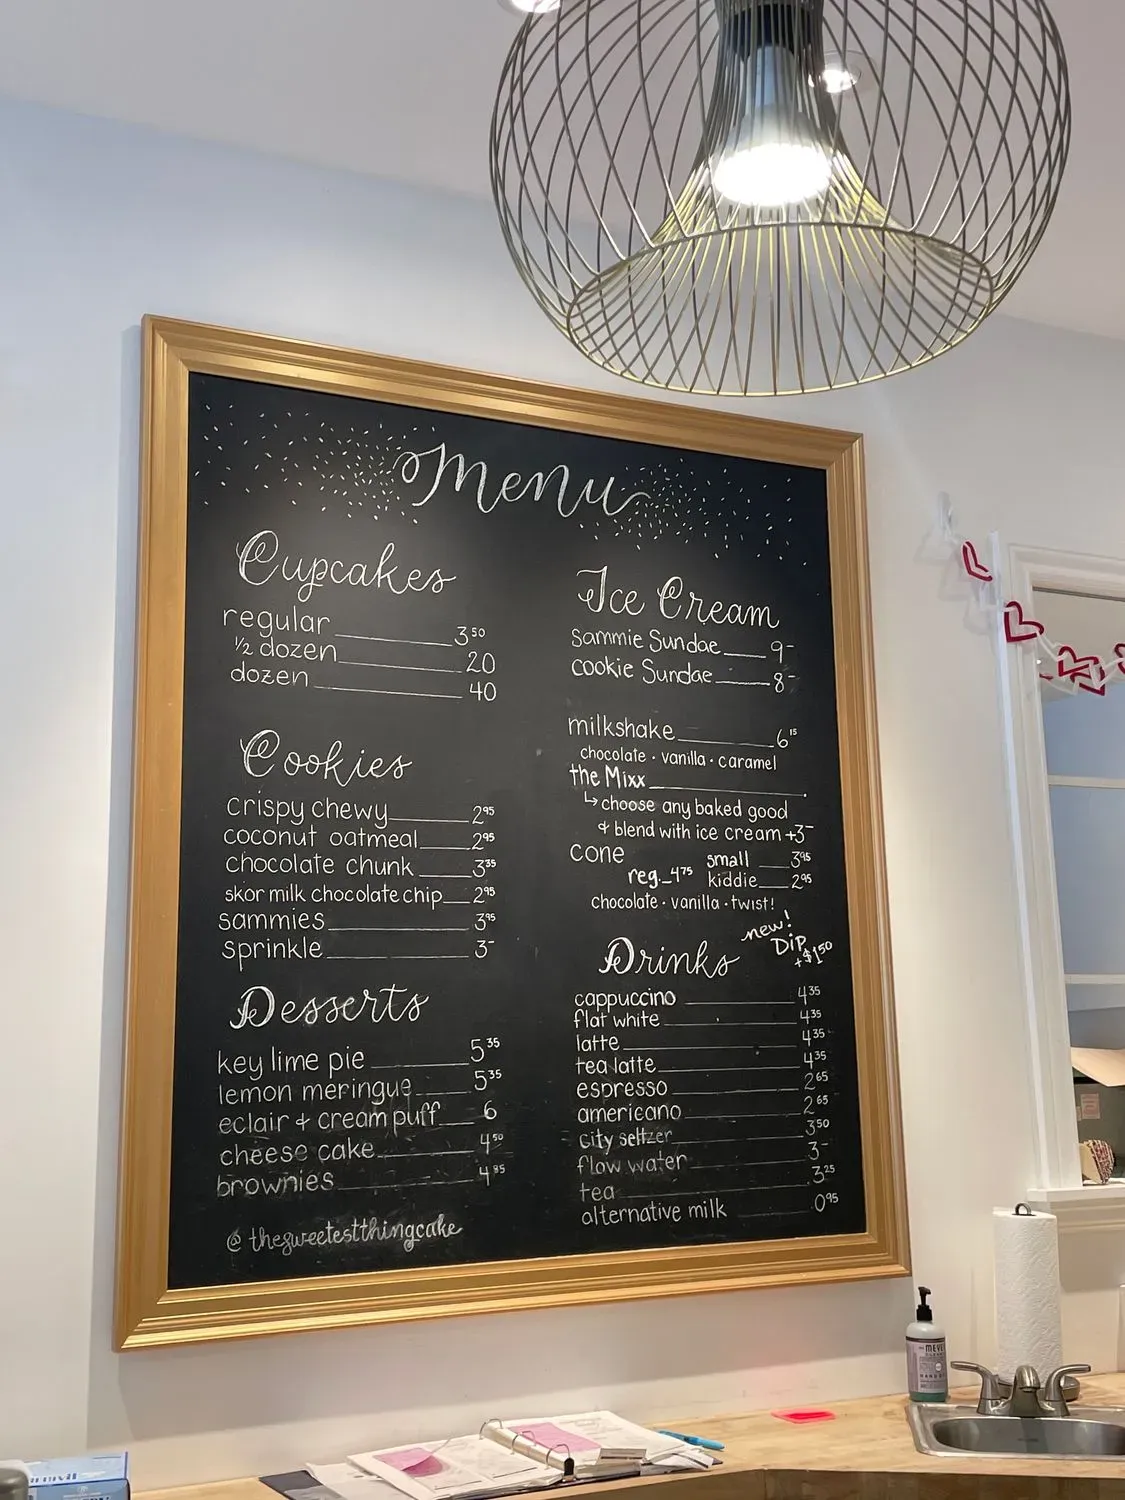 Menu
Cupcakes
regular 3 50
1/2 dozen 20
dozen 40
Cookies
crispy chewy 2 95
coconut oatmeal 2 95
chocolate chunk 3 35
skor milk chocolate chip 2 95
sammies 3 95
sprinkle 3-
Desserts
key lime pie 5 35
lemon meringue 5 35
eclair + cream puff 6
cheese cake 4 50
brownies 4 85
@thesweetestthingcake
Ice Cream
Sammie Sundae 9-
cookie Sundae 8-
milkshake 6 15
chocolate · vanilla · caramel
the Mixx
↳ choose any baked good
+ blend with ice cream +3-
cone
small 3 95
reg. 4 75 kiddie 2 95
chocolate · vanilla · twist!
new!
Dip
+$1.50
Drinks
cappuccino 4 35
flat white 4 35
latte 4 35
tea latte 4 35
espresso 2 65
americano 2 65
city seltzer 3 50
flow water 3-
tea 3 25
alternative milk 0 95